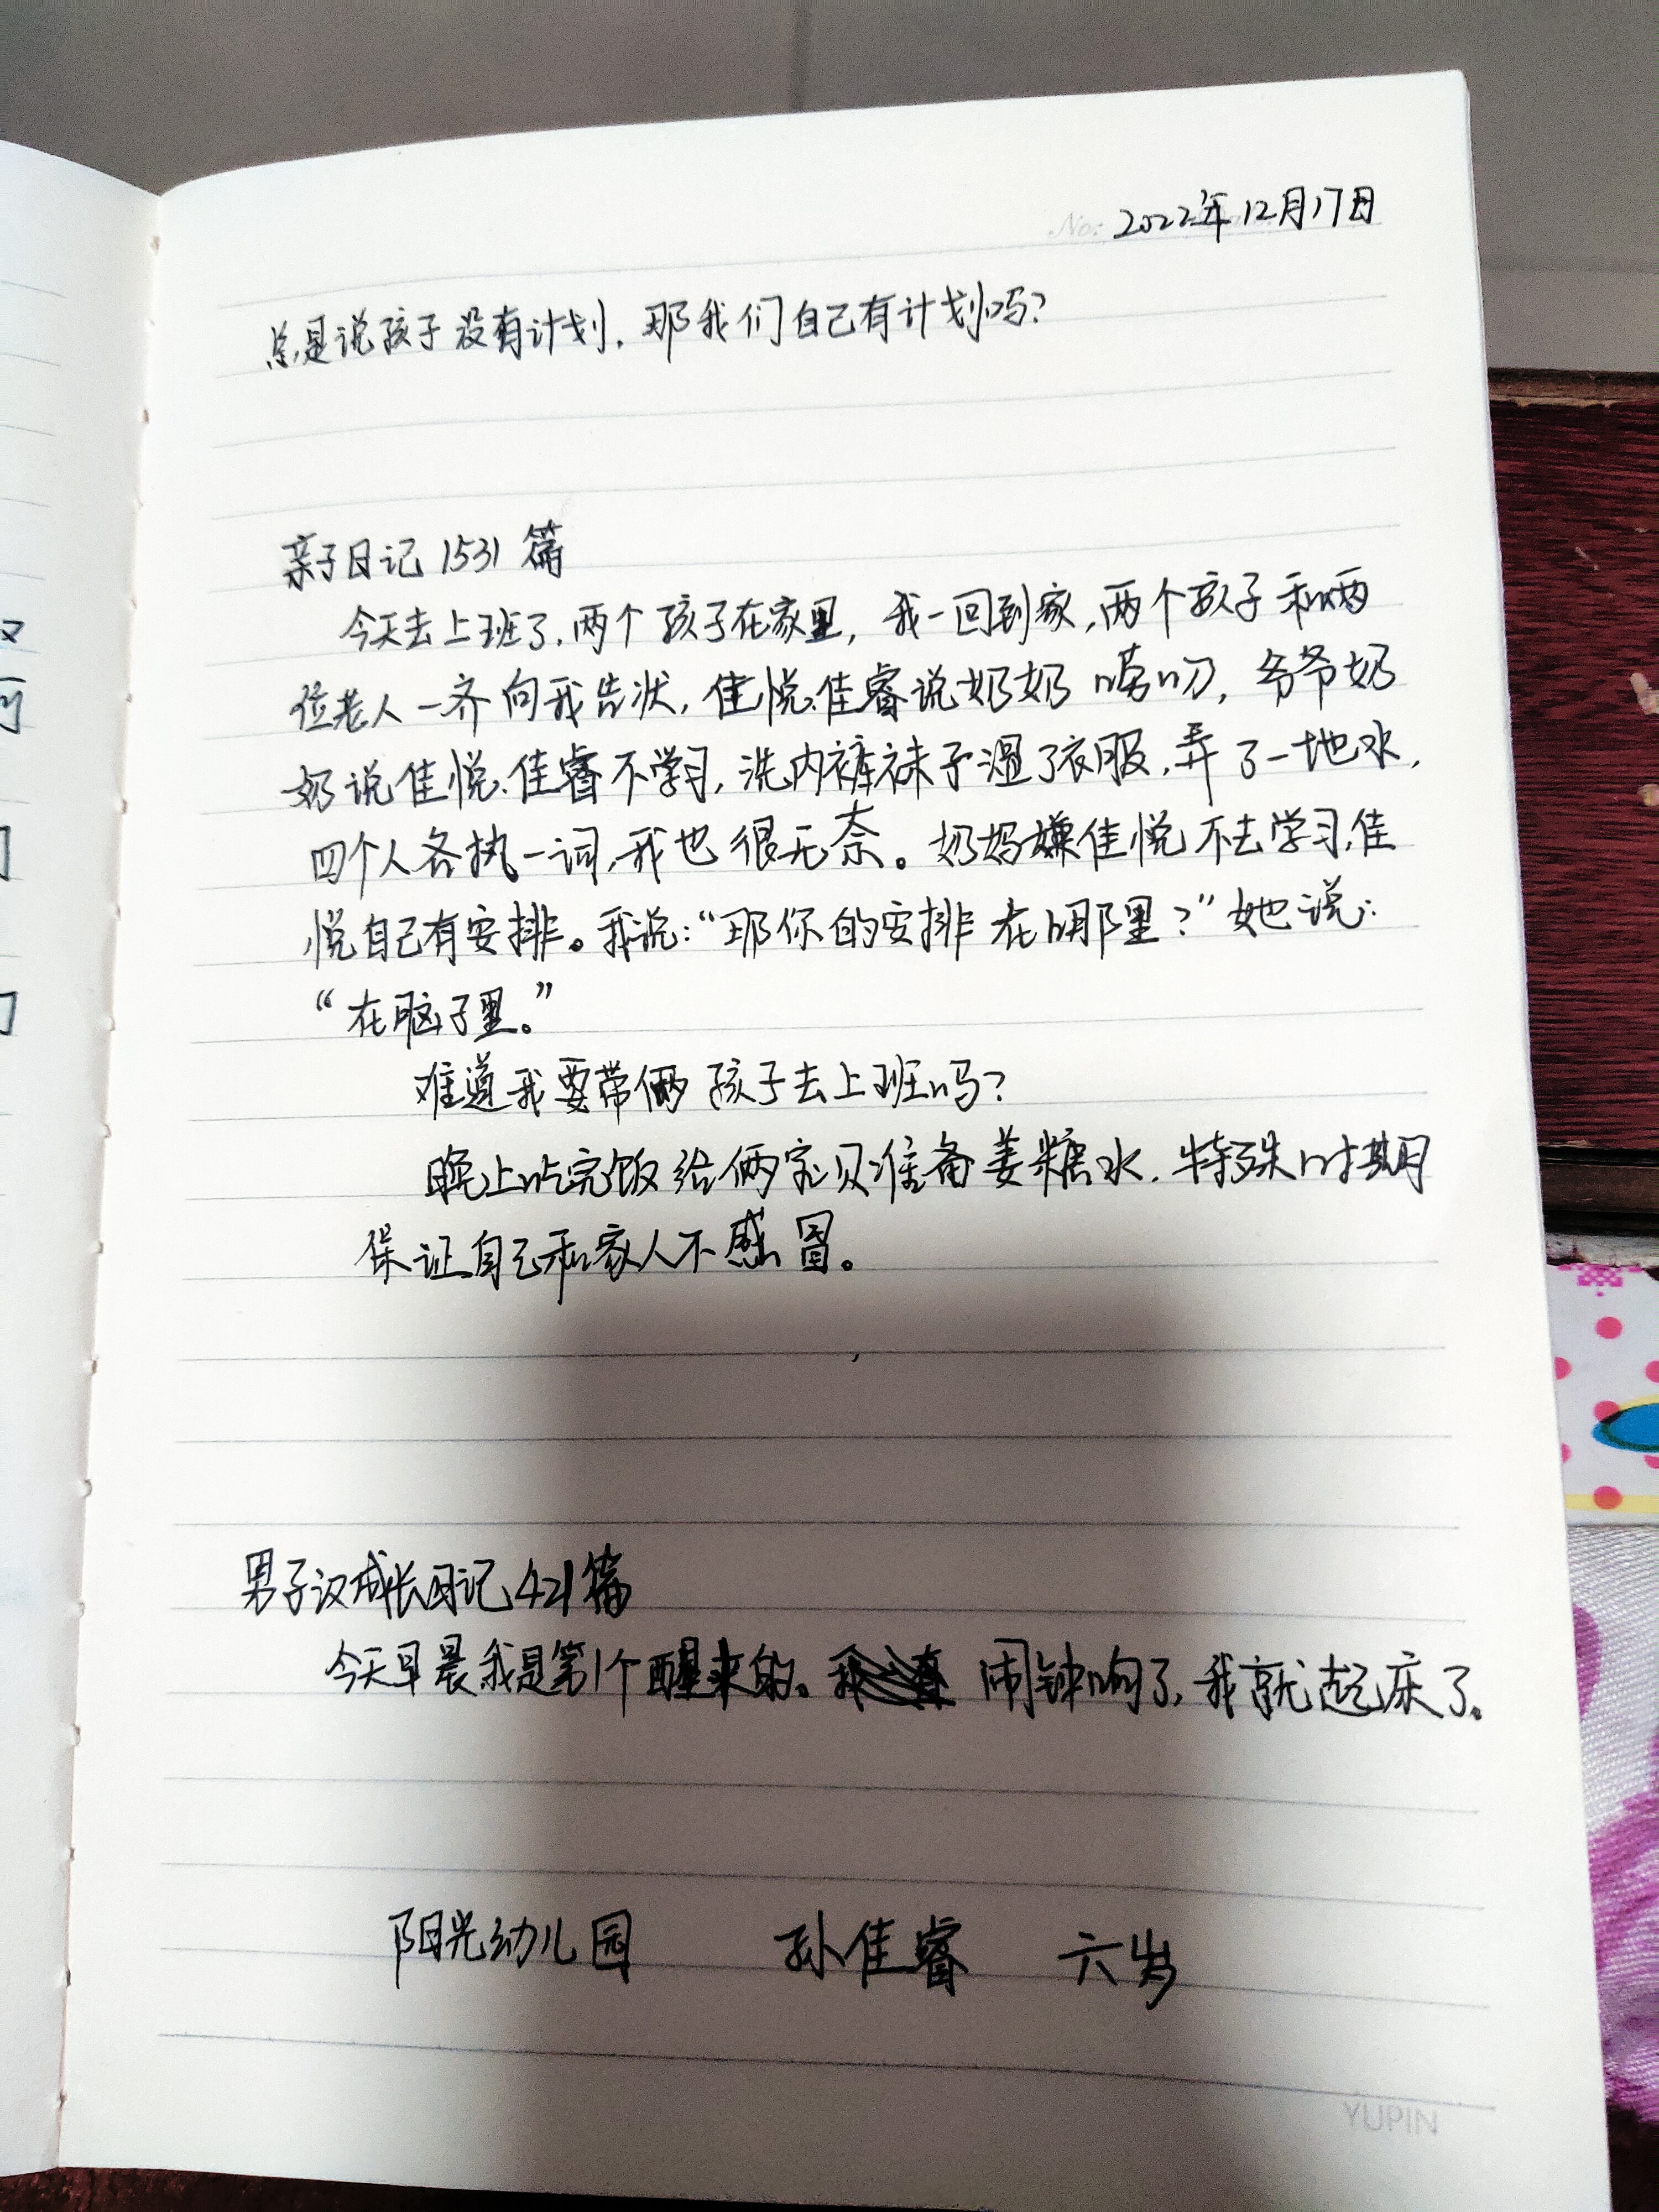 No: 2022年12月17日
总是说孩子没有计划,那我们自己有计划吗?
亲子日记1531篇
今天去上班了,两个孩子在家里,我一回到家,两个孩子和两
位老人一齐向我告状,佳悦、佳睿说奶奶唠叨,爷爷奶
奶说佳悦、佳睿不学习,洗内裤袜子湿了衣服,弄了一地水,
四个人各执一词,我也很无奈。奶妈嫌佳悦不去学习,佳
悦自己有安排。我说:“那你的安排在哪里?”她说:
“在脑子里。”
难道我要带俩孩子去上班吗?
晚上吃完饭给俩宝贝准备姜糖水,特殊时期
保证自己和家人不感冒。
男子汉成长日记421篇
今天早晨我是第1个醒来的。闹钟响了,我就起床了。
阳光幼儿园 孙佳睿 六岁
YUPIN
汉